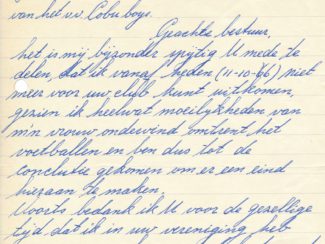 van het v.v. Cobu boys.
Geachte bestuur,
het is mij bijzonder spijtig U mede te
delen, dat ik vanaf heden (11-10-66) niet
meer voor uw club kunt uitkomen,
gezien ik heelwat moeilijkheden van
m'n vrouw ondervind omtrent het
voetballen en ben dus tot de
conclutie gekomen om er een eind
hieraan te maken.
Voorts bedank ik U voor de gezellige
tijd dat ik in uw vereniging heb